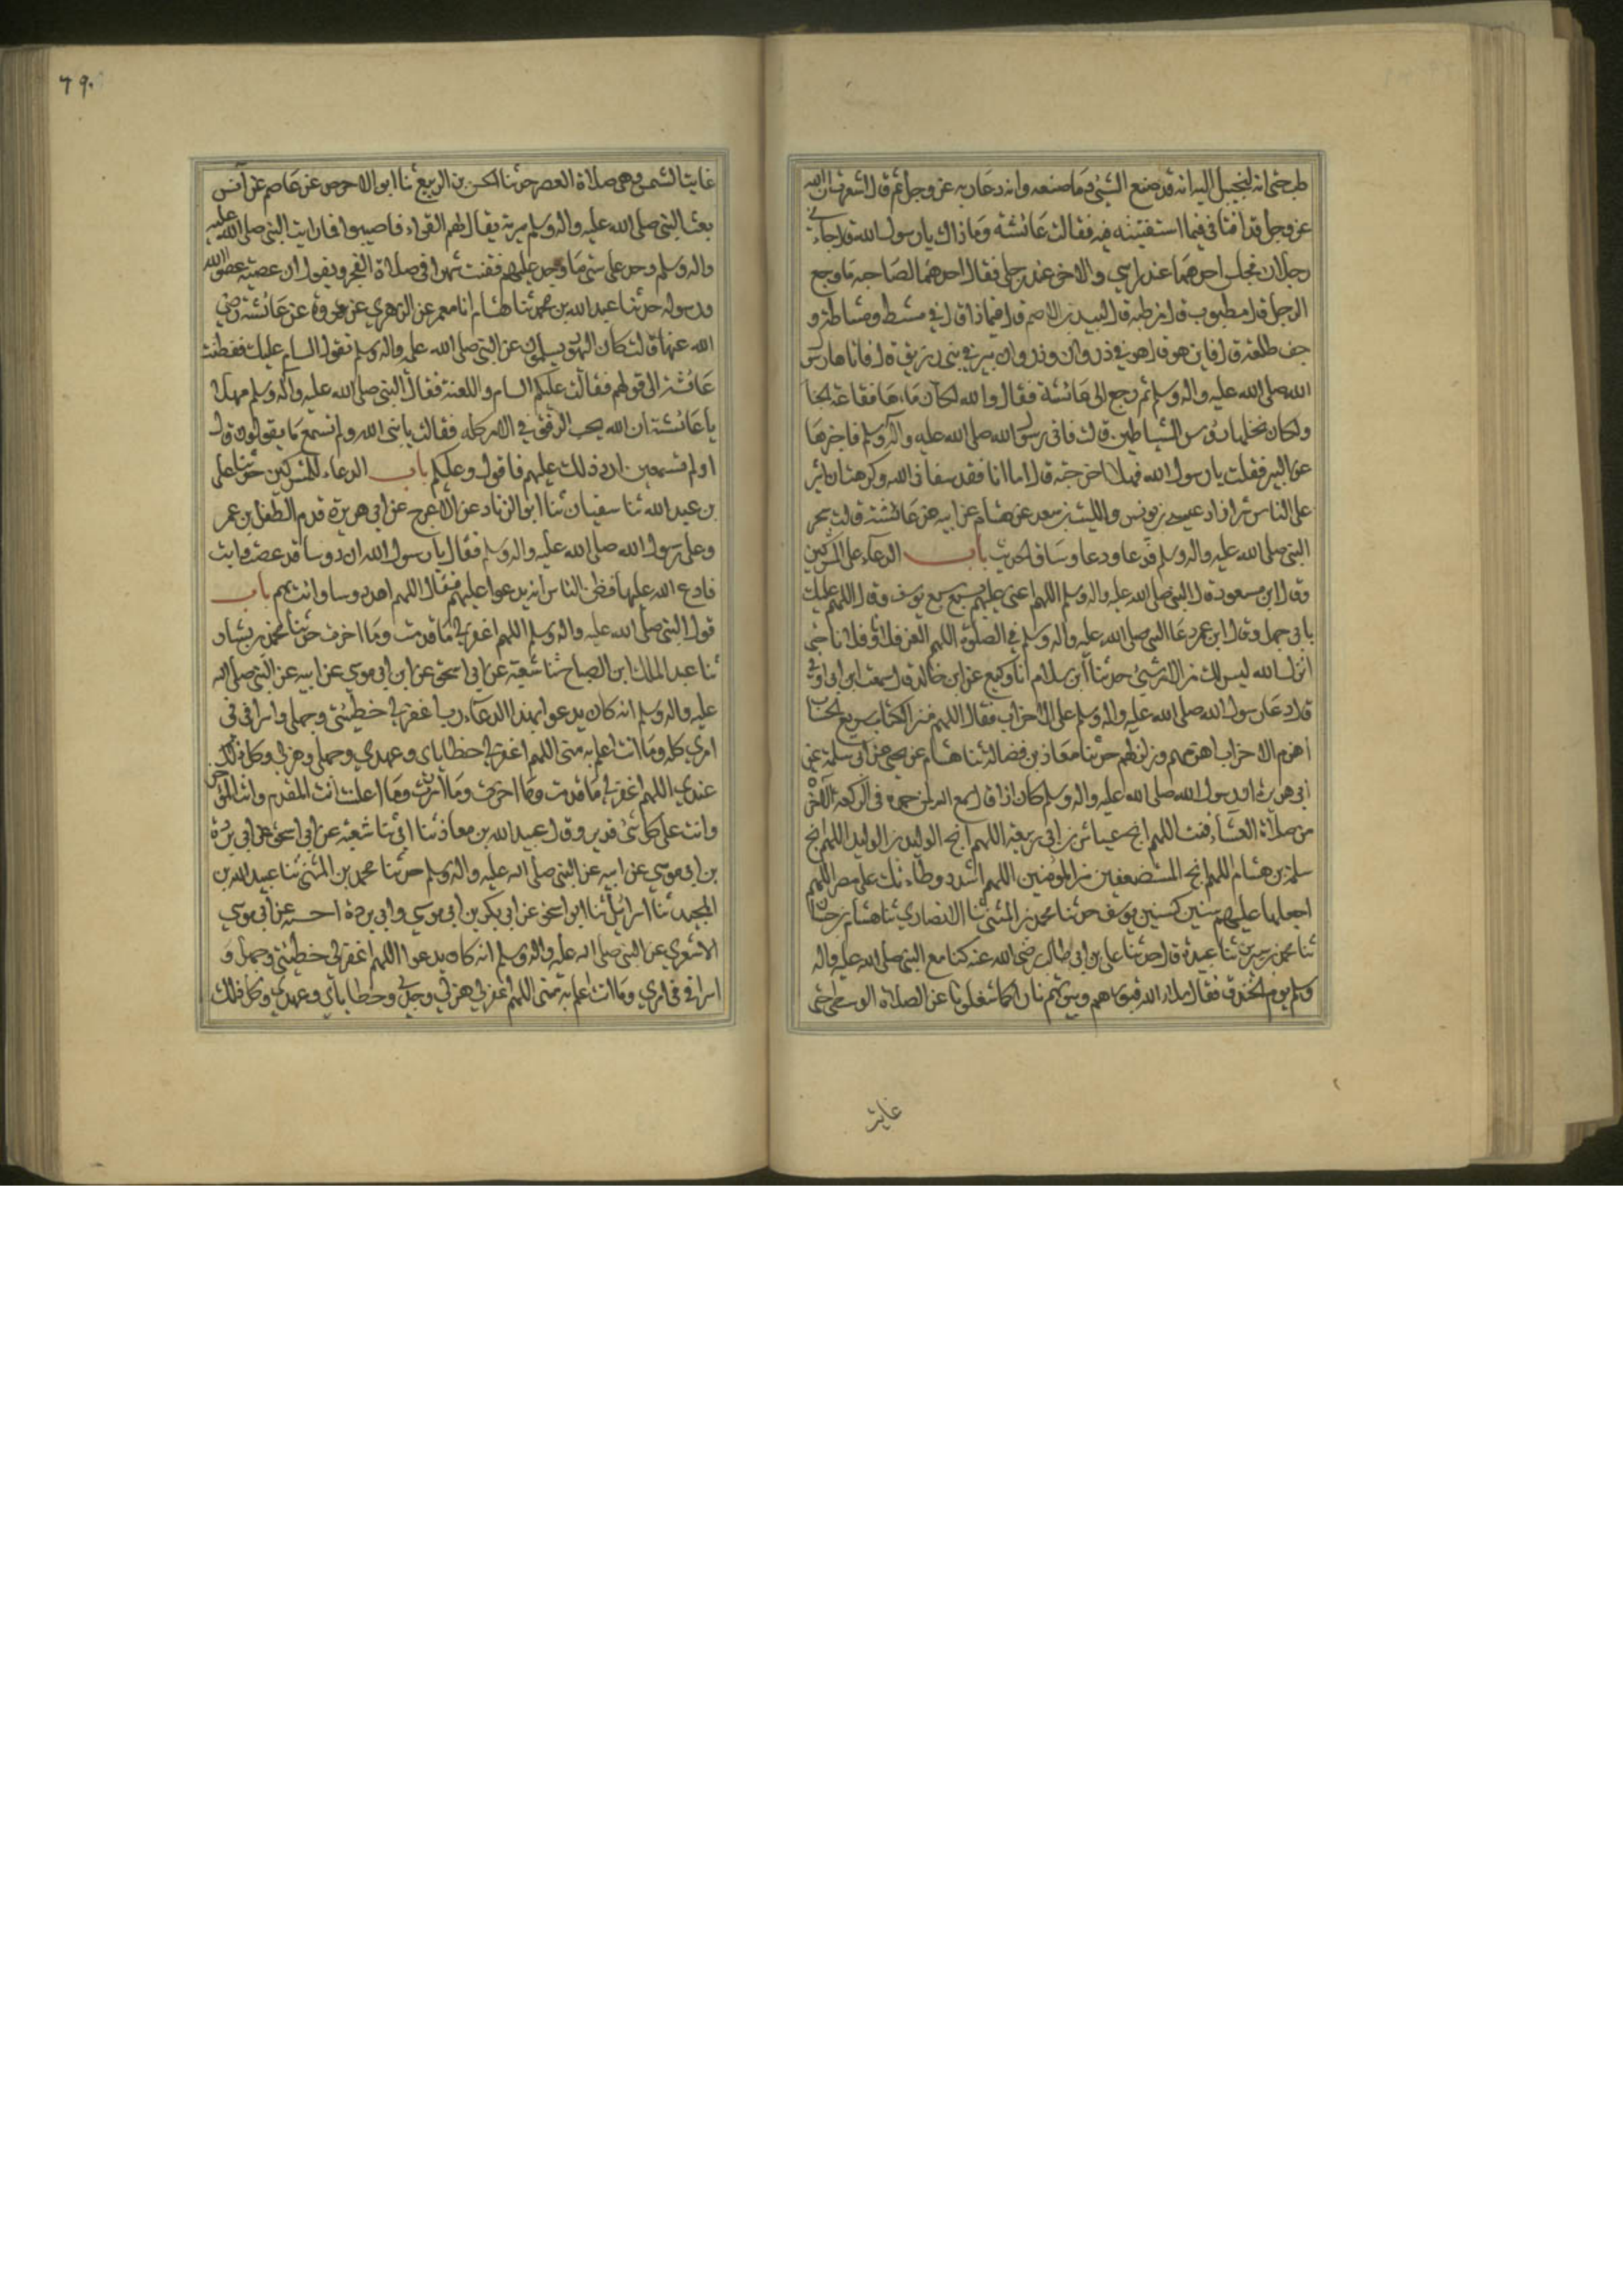 طب حتى انه ليخيل اليه انه قد صنع الشيء وما صنعه وانه دعا ربه عز وجل ثم قال اشعرت ان الله
عز وجل قد افتاني فيما استفتيته فيه فقالت عائشة وما ذاك يارسول الله قال جاءني
رجلان فجلس احدهما عند راسي والاخر عند رجلي فقال احدهما لصاحبه ما وجع
الرجل قال مطبوب قال من طبه قال لبيد بن الاعصم قال فيماذا قال في مشط ومشاطة و
جف طلعة قال فاين هو قال هو في ذروان وذروان بير في بني زريق قال فاتاها رسول
الله صلى الله عليه واله وسلم ثم رجع الى عائشة فقال والله لكان ماءها نقاعة الحنا
ولكان نخلها رؤس الشياطين قالت فاتى رسول الله صلى الله عليه واله وسلم فاخبرها
عن البير فقلت يارسول الله فهلا اخرجته قال اما انا فقد شفاني الله وكرهت ان اثير
على الناس شرا زاد عيسى بن يونس والليث بن سعد عن هشام عن ابيه عن عائشة قالت سحر
النبي صلى الله عليه واله وسلم فدعا ودعا وساق الحديث باب الدعاء على المشركين
وقال ابن مسعود قال النبي صلى الله عليه واله وسلم اللهم اعني عليهم بسبع كسبع يوسف وقال اللهم عليك
بابي جهل وقال ابن عمر دعا النبي صلى الله عليه واله وسلم في الصلوة اللهم العن فلانا وفلانا حتى
انزل الله ليس لك من الامر شيء حدثنا ابن سلام انا وكيع عن ابن خالد قال سمعت ابن ابي اوفى
قال دعا رسول الله صلى الله عليه واله وسلم على الاحزاب فقال اللهم منزل الكتاب سريع الحساب
اهزم الاحزاب اهزمهم وزلزلهم حدثنا معاذ بن فضالة ثنا هشام عن يحيى عن ابي سلمة عن
ابي هريرة ان رسول الله صلى الله عليه واله وسلم كان اذا قال سمع الله لمن حمده في الركعة الاخرة
من صلاة العشاء قنت اللهم انج عياش بن ابي ربيعة اللهم انج الوليد بن الوليد اللهم انج
سلمة بن هشام اللهم انج المستضعفين من المؤمنين اللهم اشدد وطاءتك على مضر اللهم
اجعلها عليهم سنين كسنين يوسف حدثنا محمد بن المثنى ثنا الانصاري ثنا هشام بن حسان
ثنا محمد بن سيرين ثنا عبيدة قال حدثنا علي بن ابي طالب رضي الله عنه كنا مع النبي صلى الله عليه واله
وسلم يوم الخندق فقال ملاء الله قبورهم وبيوتهم نارا كما شغلونا عن الصلاة الوسطى حتى
غابت
٦٩٠
غابت الشمس وهي صلاة العصر حدثنا الحسن بن الربيع ثنا ابو الاحوص عن عاصم عن انس
بعث النبي صلى الله عليه واله وسلم سرية يقال لهم القراء فاصيبوا فما رايت النبي صلى الله عليه
واله وسلم وجد على شي ما وجد عليهم فقنت شهرا في صلاة الفجر ويقول ان عصية عصوا الله
ورسوله حدثنا عبد الله بن محمد ثنا هشام انا معمر عن الزهري عن عروة عن عائشة رضي
الله عنها قالت كان اليهود يسلمون على النبي صلى الله عليه واله وسلم تقول السام عليك ففطنت
عائشة الى قولهم فقالت عليكم السام واللعنة فقال النبي صلى الله عليه واله وسلم مهلا
يا عائشة ان الله يحب الرفق في الامر كله فقالت يا نبي الله ولم تسمع ما يقولون قال
اولم تسمعين ارد ذلك عليهم فاقول وعليكم باب الدعاء للمشركين حدثنا علي
بن عبد الله ثنا سفيان ثنا ابو الزناد عن الاعرج عن ابي هريرة قدم الطفيل بن عمر
و على رسول الله صلى الله عليه واله وسلم فقال يارسول الله ان دوسا قد عصت وابت
فادع الله عليها فظن الناس انه يدعو عليهم فقال اللهم اهد دوسا وائت بهم باب
قول النبي صلى الله عليه واله وسلم اللهم اغفر لي ما قدمت وما اخرت حدثنا محمد بن بشار
ثنا عبد الملك ابن الصباح ثنا شعبة عن ابي اسحق عن ابن ابي موسى عن ابيه عن النبي صلى الله
عليه واله وسلم انه كان يدعوا بهذا الدعاء رب اغفر لي خطيئتي وجهلي واسرافي في
امري كله وما انت اعلم به مني اللهم اغفر لي خطاياي وعمدي وجهلي وهزلي وكل ذلك
عندي اللهم اغفر لي ما قدمت وما اخرت وما اسررت وما اعلنت انت المقدم وانت المؤخر
وانت على كل شئ قدير وقال عبيد الله بن معاذ ثنا ابي ثنا شعبة عن ابي اسحق عن ابي بردة
بن ابي موسى عن ابيه عن النبي صلى الله عليه واله وسلم حدثنا محمد بن المثنى ثنا عبيد الله بن
المجيد ثنا اسرائيل ثنا ابو اسحق عن ابي بكر بن ابي موسى وابي بردة احسبه عن ابي موسى
الاشعري عن النبي صلى الله عليه واله وسلم انه كان يدعوا اللهم اغفر لي خطيئتي وجهلي و
اسرافي في امري وما انت اعلم به مني اللهم اغفر لي هزلي وجدي وخطاياي وعمدي وكل ذلك